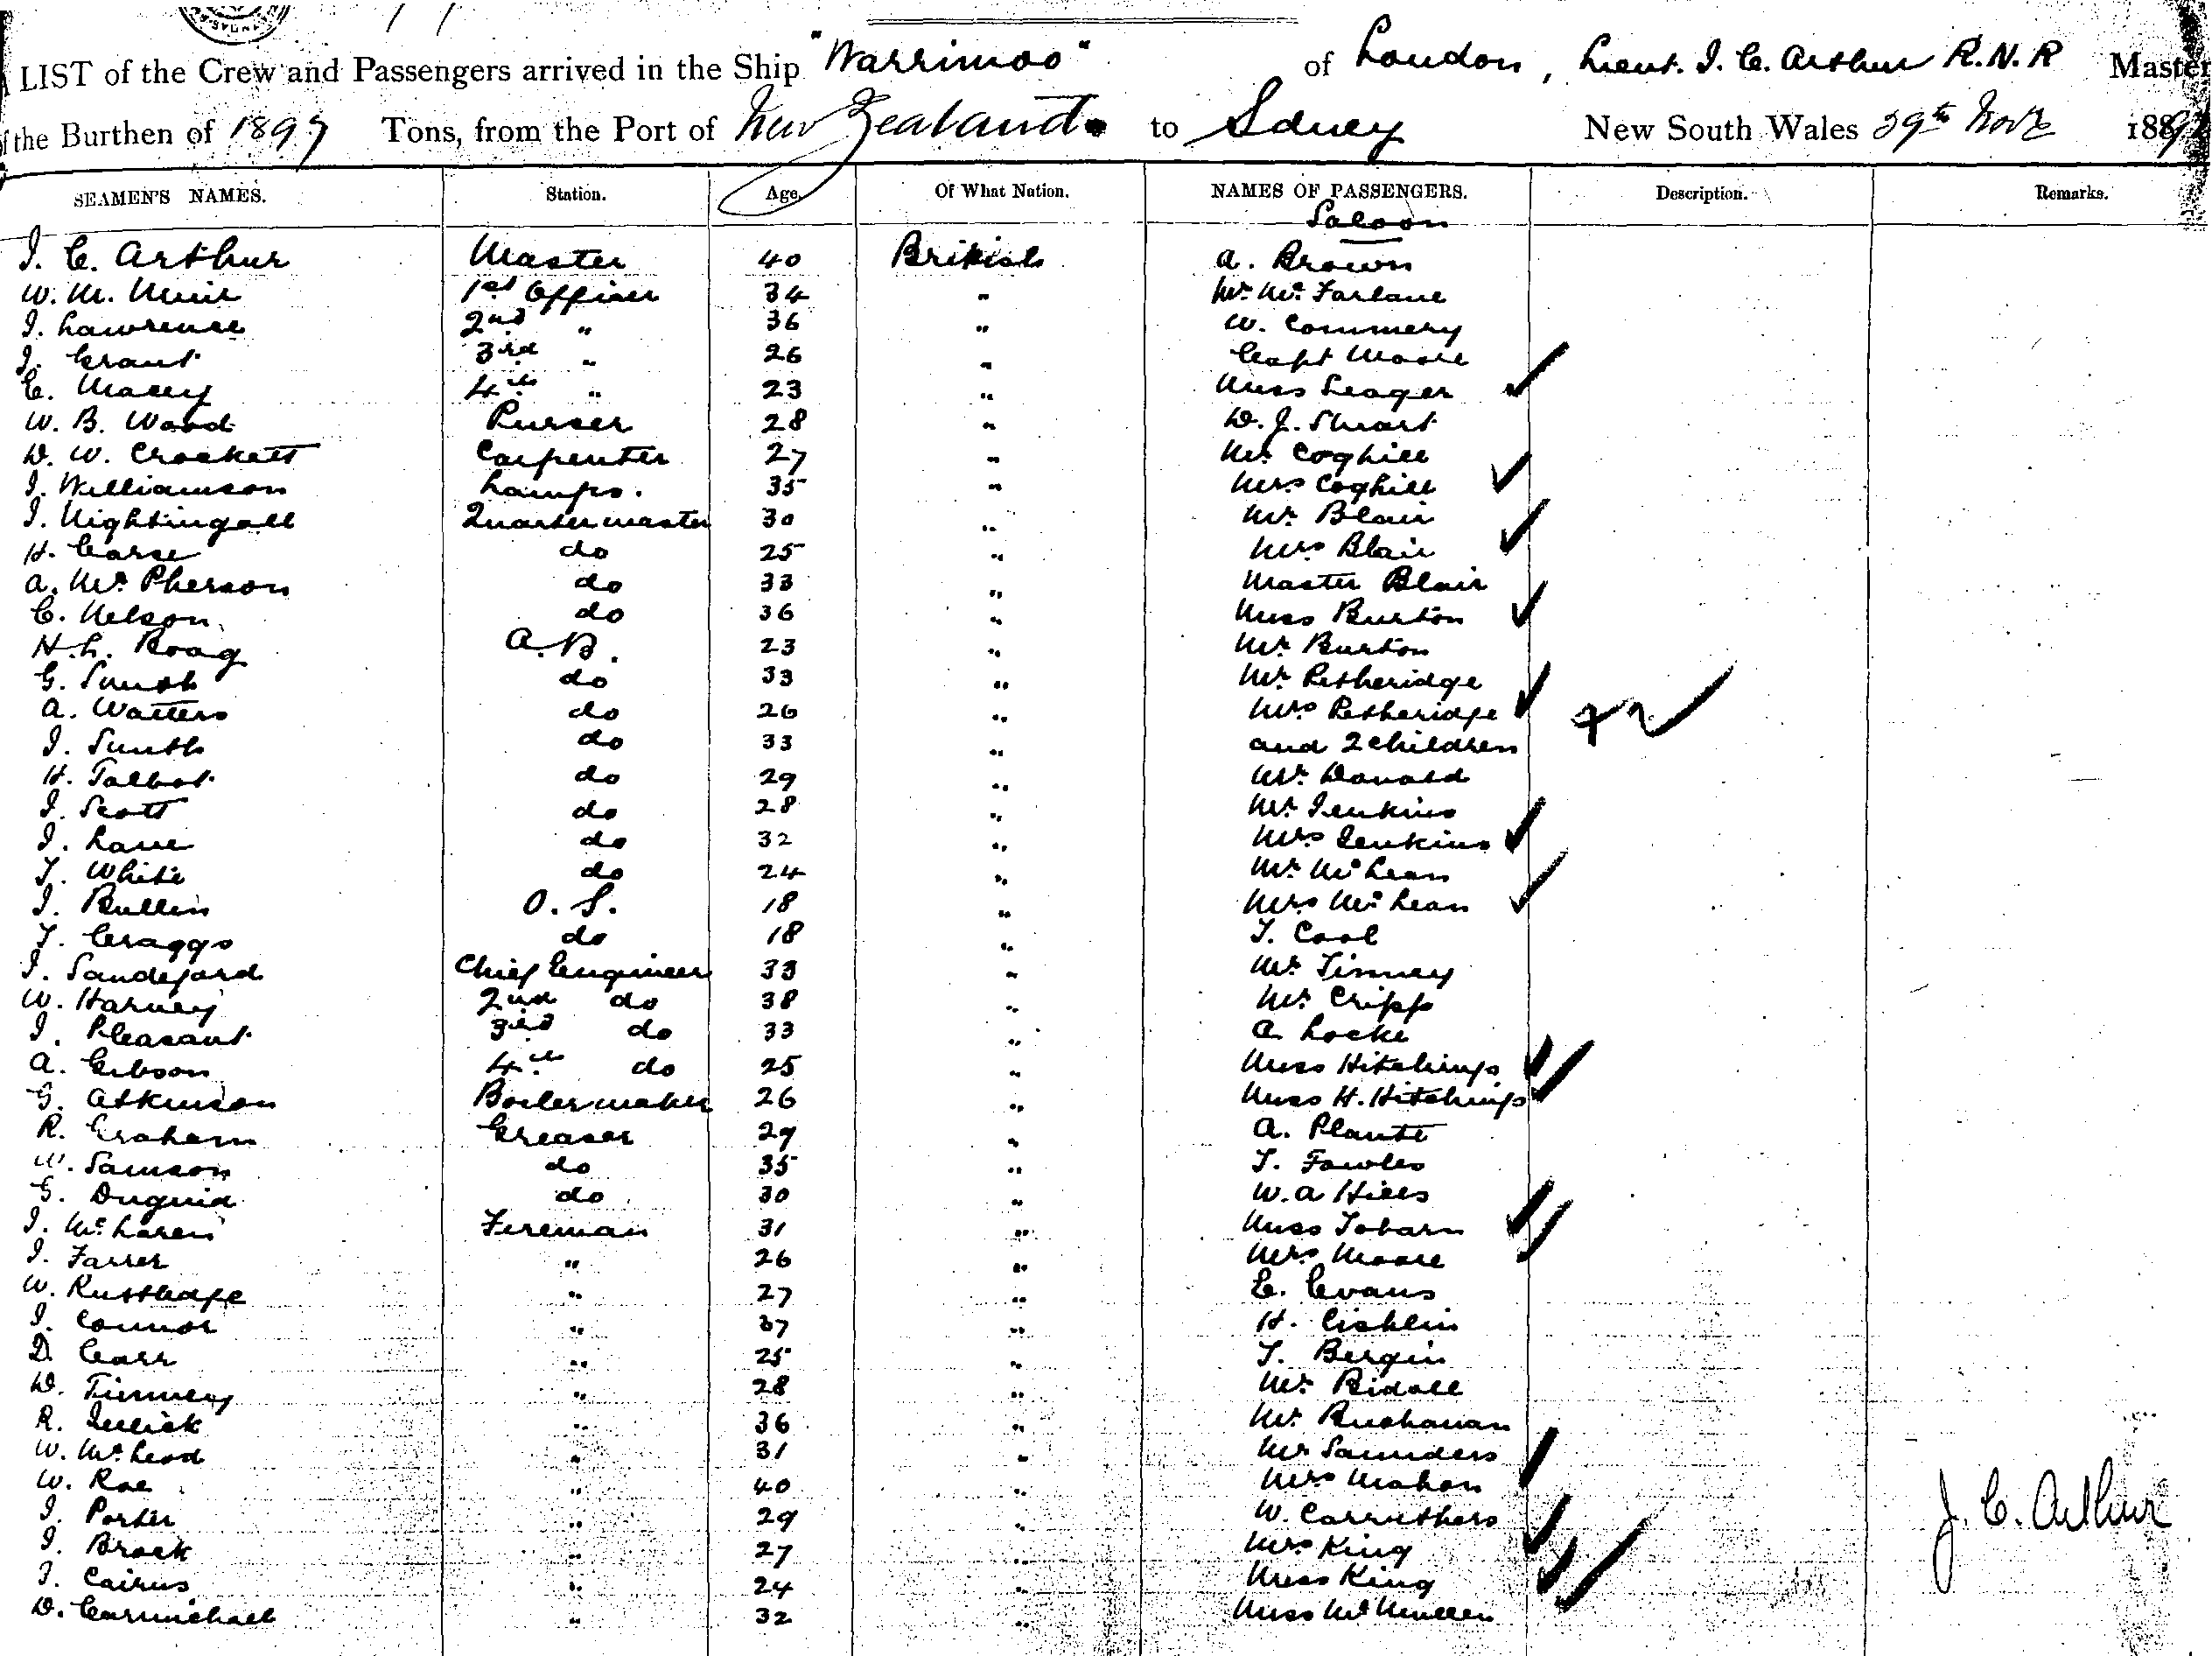 LIST of the Crew and Passengers arrived in the Ship "Warrimoo" of London, Lieut. J. C. Arthur R.N.R Master
of the Burthen of 1897 Tons, from the Port of New Zealand to Sdney New South Wales 29th Novr 189
SEAMEN'S NAMES. Station. Age. Of What Nation. NAMES OF PASSENGERS. Description. Remarks.
Saloon
J. C. Arthur Master 40 British A. Brown
W. M. Muir 1st Officer 34 " Mr McFarlane
J. Lawrence 2nd " 36 " W. Commery
J. Grant 3rd " 26 " Capt Moore
C. Macey 4th " 23 " Miss Seager
W. B. Wood Purser 28 " D. J. Stuart
D. W. Crockett Carpenter 27 " Mr Coghill
J. Williamson Lamps. 35 " Mrs Coghill
J. Nightingall Quartermaster 30 " Mr Blair
H. Carse do 25 " Mrs Blair
A. McPherson do 33 " Master Blair
C. Nelson do 36 " Miss Burton
N. L. Roag A.B. 23 " Mr Burton
G. Smith do 33 " Mr Petheridge
A. Watters do 26 " Mrs Petheridge
J. Smith do 33 " and 2 children
H. Talbot do 29 " Mr Donald
J. Scott do 28 " Mr Jenkins
J. Lane do 32 " Mrs Jenkins
T. White do 24 " Mr McLean
J. Bullen O. S. 18 " Mrs McLean
T. Craggs do 18 " T. Cool
J. Sandeford Chief Engineer 33 " Mr Tinney
W. Harvey 2nd do 38 " Mr Cripp
J. Pleasant 3rd do 33 " A Locke
A. Gibson 4th do 25 " Miss Hitchings
G. Atkinson Boilermaker 26 " Miss H. Hitchings
R. Graham Greaser 29 " A. Plante
W. Samson do 35 " T. Fowles
G. Duguid do 30 " W. A Hills
J. McLaren Fireman 31 " Miss Tobarn
J. Farrer " 26 " Mrs Moore
W. Rustledge " 27 " E. Evans
J. Connor " 37 " H.
D. Carr " 25 " T. Bergin
D. Timmery " 28 " Mr Ridall
R. " 36 " Mr Buchanan
W. McLeod " 31 " Mr Saunders
W. Rae " 40 " Mrs Mahon
J. Porter " 29 " W. Carruthers
J. Brock " 27 " Mrs King
J. Cairns " 24 " Miss King
D. Carmichael " 32 " Miss McMullen
J. C. Arthur